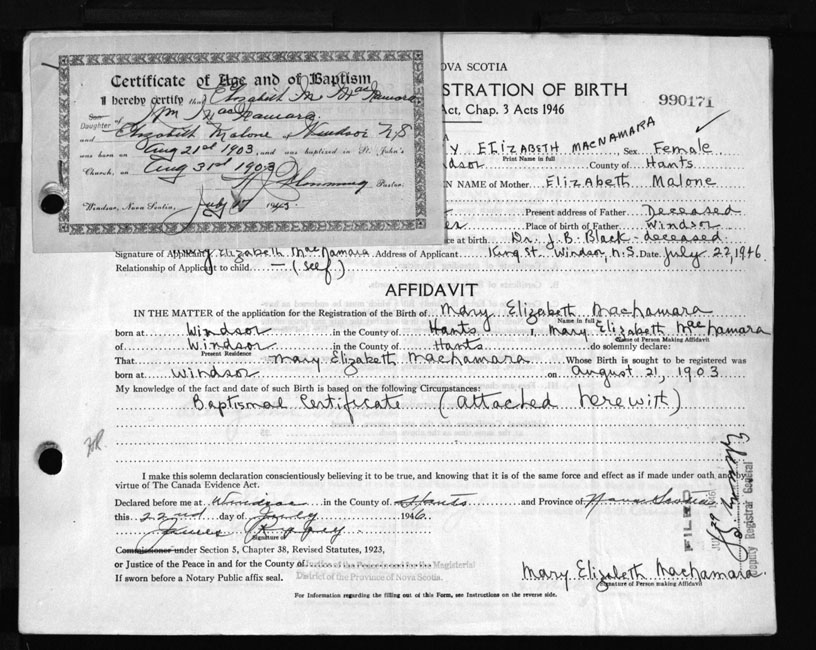 Certificate of Age and of Baptism
I hereby certify that Elizabeth M MacNamara
Son
Daughter of Wm MacNamara
and Elizabeth Malone Windsor N S
was born on Aug 21st 1903, and was baptized in St. John's
Church, on Aug 31st 1903
Pastor.
Windsor, Nova Scotia, July 17 1945.
NOVA SCOTIA
STRATION OF BIRTH
Act, Chap. 3 Acts 1946
990171
Y ELIZABETH MACNAMARA Sex Female
Print Name in full
dsor County of Hants
EN NAME of Mother Elizabeth Malone
Present address of Father Deceased
er Place of birth of Father Windsor
ce at birth Dr. J. B. Black - deceased
Signature of Applicant Mary Elizabeth MacNamara Address of Applicant King St. Windsor, N.S. Date July 22, 1946.
Relationship of Applicant to child — (self)
AFFIDAVIT
IN THE MATTER of the application for the Registration of the Birth of Mary Elizabeth MacNamara
Name in full
born at Windsor in the County of Hants I, Mary Elizabeth MacNamara
Name of Person Making Affidavit
of Windsor in the County of Hants do solemnly declare:
Present Residence
That Mary Elizabeth MacNamara Whose Birth is sought to be registered was
born at Windsor on August 21, 1903
My knowledge of the fact and date of such Birth is based on the following Circumstances:
Baptismal Certificate (attached herewith)
I make this solemn declaration conscientiously believing it to be true, and knowing that it is of the same force and effect as if made under oath and by
virtue of The Canada Evidence Act.
Declared before me at Windsor in the County of Hants and Province of Nova Scotia
this 22nd day of July 1946.
James
Signature of
Commissioner under Section 5, Chapter 38, Revised Statutes, 1923,
or Justice of the Peace in and for the County of Justice of the Peace in and for the Magisterial
District of the Province of Nova Scotia.
If sworn before a Notary Public affix seal.
Mary Elizabeth MacNamara.
Signature of Person making Affidavit
For Information regarding the filling out of this Form, see Instructions on the reverse side.
FILED
Deputy Registrar General